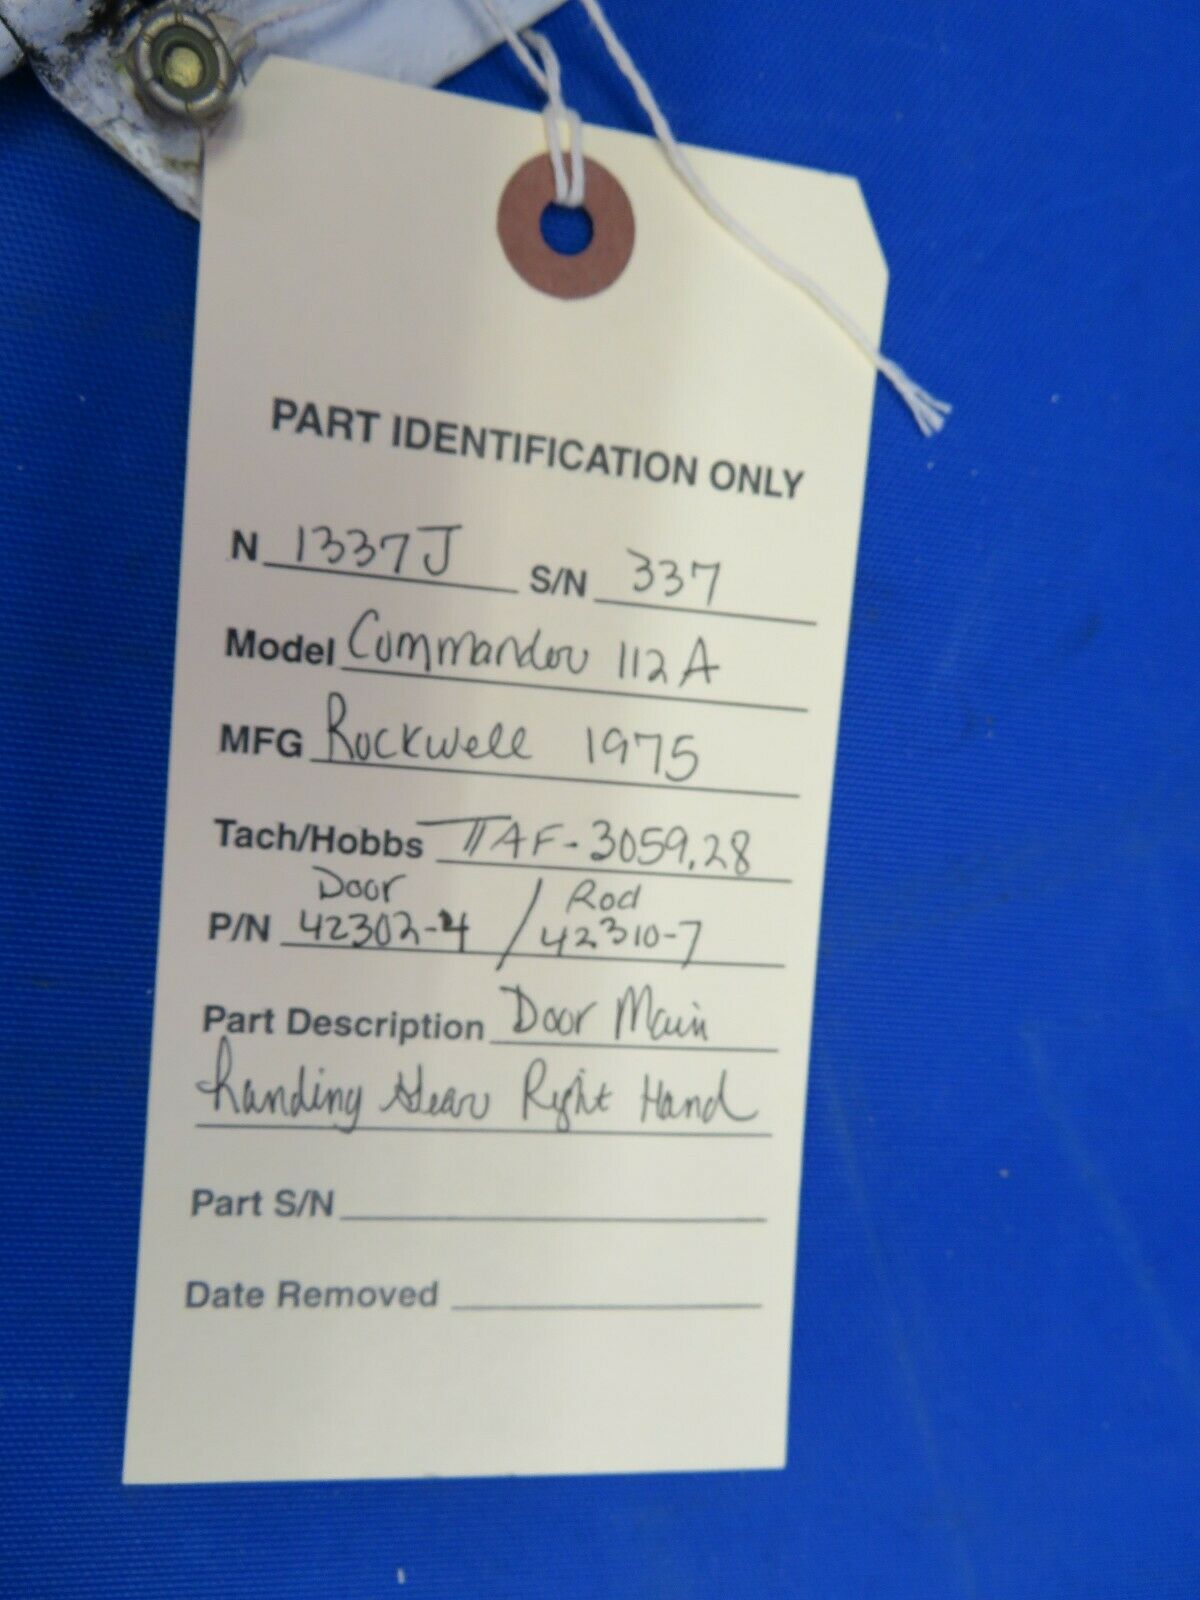 PART IDENTIFICATION ONLY
N 1337J S/N 337
Model Commander 112A
MFG Rockwell 1975
Tach/Hobbs TTAF-3059.28
Door / Rod
P/N 42302-4 / 42310-7
Part Description Door Main
Landing Gear Right Hand
Part S/N
Date Removed